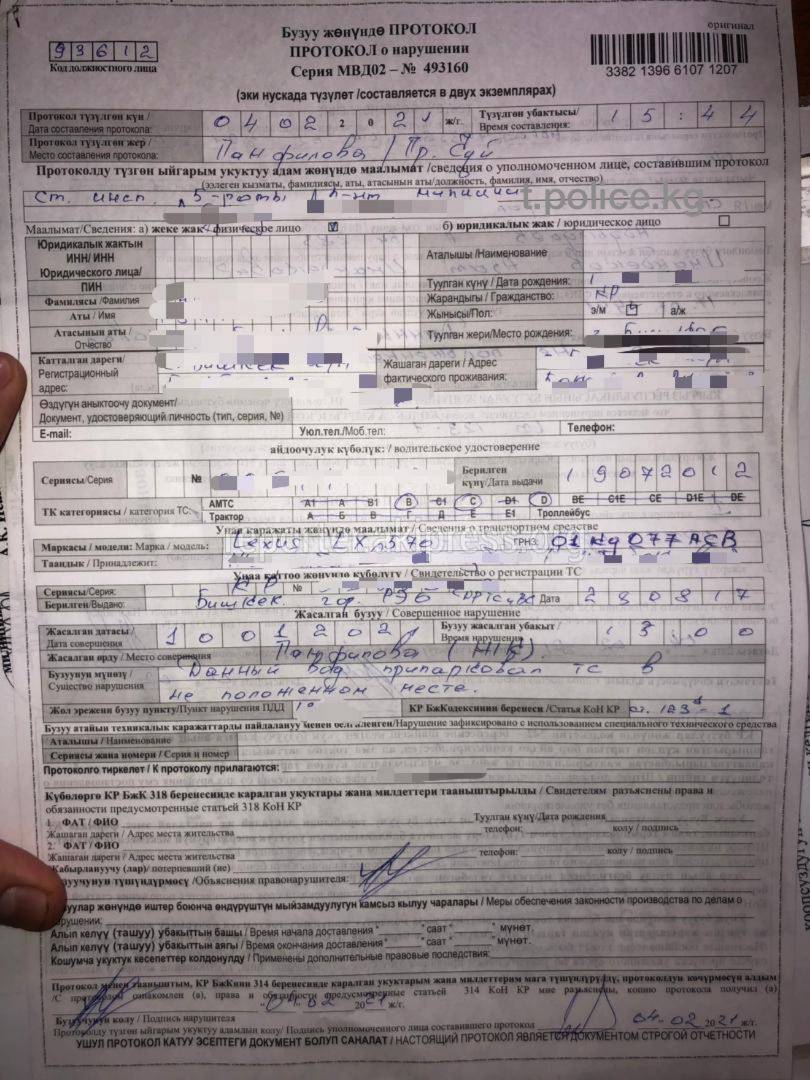 оригинал
Бузуу жөнүндө ПРОТОКОЛ
ПРОТОКОЛ о нарушении
Серия МВД02 – № 493160
93612
Код должностного лица
3382 1396 6107 1207
(эки нускада түзүлөт /составляется в двух экземплярах)
Протокол түзүлгөн күн /
Дата составления протокола:
0402 2021 ж/г.
Түзүлгөн убактысы/
Время составления:
15:44
Протокол түзүлгөн жер /
Место составления протокола:
Панфилова / Пр. Чуй
Протоколду түзгөн ыйгарым укуктуу адам жөнүндө маалымат /сведения о уполномоченном лице, составившим протокол
(ээлеген кызматы, фамилиясы, аты, атасынын аты/должность, фамилия, имя, отчество)
Ст. инсп. 5-роты л-нт милиции
t.police.kg
Маалымат/Сведения: а) жеке жак / физическое лицо
б) юридикалык жак / юридическое лицо
Юридикалык жактын
ИНН/ ИНН
Юридического лица/
ПИН
Аталышы /Наименование
Туулган күнү / Дата рождения:
Фамилиясы /Фамилия
Жарандыгы / Гражданство: КР
Аты / Имя
Жынысы/Пол: э/м а/ж
Атасынын аты /
Отчество
Туулган жери/Место рождения:
Катталган дареги/
Регистрационный
адрес:
Бишкек
Жашаган дареги / Адрес
фактического проживания:
Өздүгүн аныктоочу документ/
Документ, удостоверяющий личность (тип, серия, №)
E-mail: Уюл.тел./Моб.тел: Телефон:
айдоочулук күбөлүк: / водительское удостоверение
Сериясы/Серия №
Берилген
күнү/Дата выдачи
19072012
ТК категориясы / категория ТС:
АМТС А1 А В1 В С1 С D1 D BE C1E CE D1E DE
Трактор А Б В Г Д Е Е1 Троллейбус
Унаа каражаты жөнүндө маалымат / Сведения о транспортном средстве
Маркасы / модели: Марка / модель: Lexus LX 570 ГРНЗ: 01 kg 077 ACB
Таандык / Принадлежит:
Унаа каттоо жөнүндө күбөлүгү / Свидетельство о регистрации ТС
Сериясы/Серия: КР №
Берилген/Выдано: Бишкек. гор. РЭО Дата 280817
Жасалган бузуу / Совершенное нарушение
Жасалган датасы /
Дата совершения
10012021
Бузуу жасалган убакыт /
Время нарушения
1300
Жасалган орду / Место совершения Панфилова
Бузуунун мүнөзү /
Существо нарушения
Данный вод припарковал тс в
не положенном месте.
Жол эрежени бузуу пункту/Пункт нарушения ПДД
КР БжКодексинин беренеси /Статья КоН КР ст. 193-1
Бузуу атайын техникалык каражаттарды пайдалануу менен белгиленген/Нарушение зафиксировано с использованием специального технического средства
Аталышы / Наименование
Сериясы жана номери / Серия и номер
Протоколго тиркелет / К протоколу прилагаются:
Күбөлөргө КР БжК 318 беренесинде каралган укуктары жана милдеттери тааныштырылды / Свидетелям разъяснены права и
обязанности предусмотренные статьей 318 КоН КР
1. ФАТ / ФИО Туулган күнү/Дата рождения
Жашаган дареги / Адрес места жительства телефон: колу / подпись
2. ФАТ / ФИО
Жашаган дареги / Адрес места жительства телефон: колу / подпись
Жабырлануучу (лар)/ потерпевший (ие)
түшүндүрмөсү /Объяснения правонарушителя:
жөнүндө иштер боюнча өндүрүштүн мыйзамдуулугун камсыз кылуу чаралары / Меры обеспечения законности производства по делам о
Алып келүү (ташуу) убакыттын башы / Время начала доставления саат мүнөт.
Алып келүү (ташуу) убакыттын аягы / Время окончания доставления саат мүнөт.
Кошумча укуктук кесепеттер колдонулду / Применены дополнительные правовые последствия:
Протокол менен тааныштым, КР БжКнин 314 беренесинде каралган укуктарым жана милдеттерим мага түшүндүрүлдү, протоколдун көчүрмөсүн алдым
/С протоколом ознакомлен (а), права и обязанности предусмотренные статьей 314 КоН КР мне разъяснены, копию протокола получил (а)
04.02 2021 ж/г.
Бузуучунун колу / Подпись нарушителя
Протоколду түзгөн ыйгарым укуктуу адамдын колу/ Подпись уполномоченного лица составившего протокол 04.02 2021 ж/г.
УШУЛ ПРОТОКОЛ КАТУУ ЭСЕПТЕГИ ДОКУМЕНТ БОЛУП САНАЛАТ / НАСТОЯЩИЙ ПРОТОКОЛ ЯВЛЯЕТСЯ ДОКУМЕНТОМ СТРОГОЙ ОТЧЕТНОСТИ